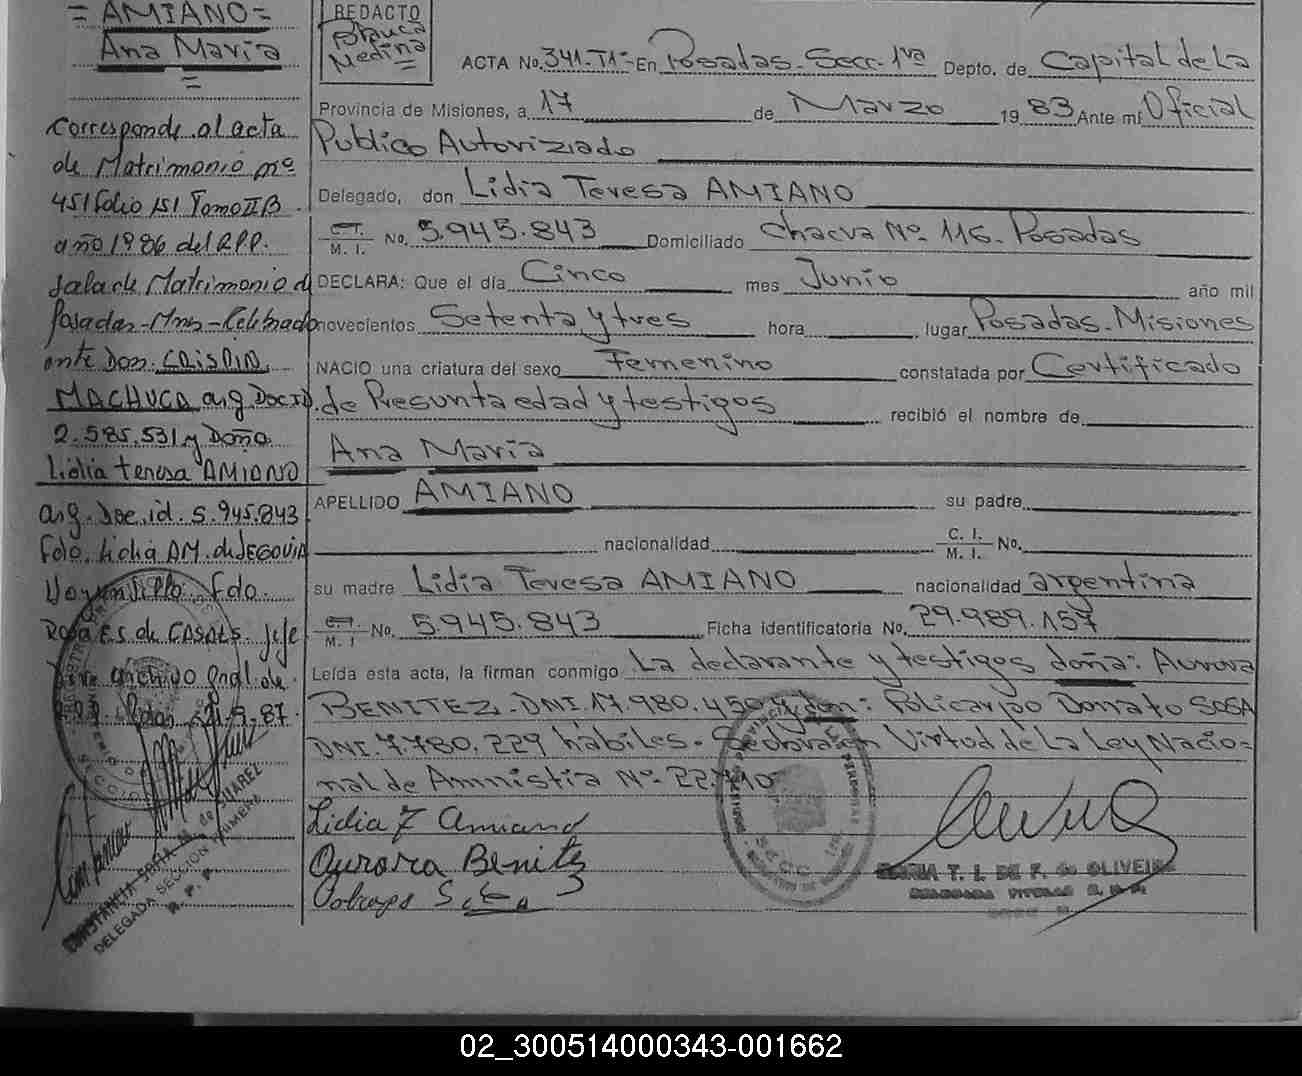 = AMIANO =
Ana María
=
Corresponde al acta
de Matrimonio nº
451 folio 151 Tomo II B
año 1986 del R.P.P.
Sala de Matrimonio d
Posadas - Mns - Celebrado
ante Don: CRISPIN
MACHUCA arg. Doc. ID.
2.585.531 y Doña
Lidia teresa AMIANO
arg. Doc. id. 5.945.843
Fdo. AM. de SEGOVIA
Fdo.
Rosa E.S. de CASALS. Jefe
archivo Gral. de
CONSTANCIA SOFIA M. de SUAREZ
DELEGADA SECCION PRIMERA
R. P. P.
REDACTO
Blanca
Medina
=
ACTA No. 341-T1º- En Posadas. Secc. 1ra Depto. de Capital de La
Provincia de Misiones, a 17 de Marzo 1983 Ante mí Oficial
Publico Autoriziado
Delegado, don Lidia Teresa AMIANO
C.I. M. I. No. 5.945.843 Domiciliado Chacra Nº 116. Posadas
DECLARA: Que el día Cinco mes Junio año mil
novecientos Setenta y tres hora lugar Posadas. Misiones
NACIO una criatura del sexo Femenino constatada por Certificado
de Presunta edad y testigos recibió el nombre de
Ana María
APELLIDO AMIANO su padre
nacionalidad C. I. M. I. No.
su madre Lidia Teresa AMIANO nacionalidad argentina
C.I. M. I No. 5.945.843 Ficha identificatoria No. 29.989.157
Leída esta acta, la firman conmigo La declarante y testigos doña: Aurora
BENITEZ. DNI. 17.980.450 y don: Policarpo Donato SOSA
DNI. 7.780.229 hábiles. Se labra en Virtud de La Ley Nacio=
nal de Amnistia Nº 22.410
Lidia T Amiano
Aurora Benitez
MARIA T. I. DE F. de OLIVEIRA
DELEGADA TITULAR R. P. P.
02_300514000343-001662